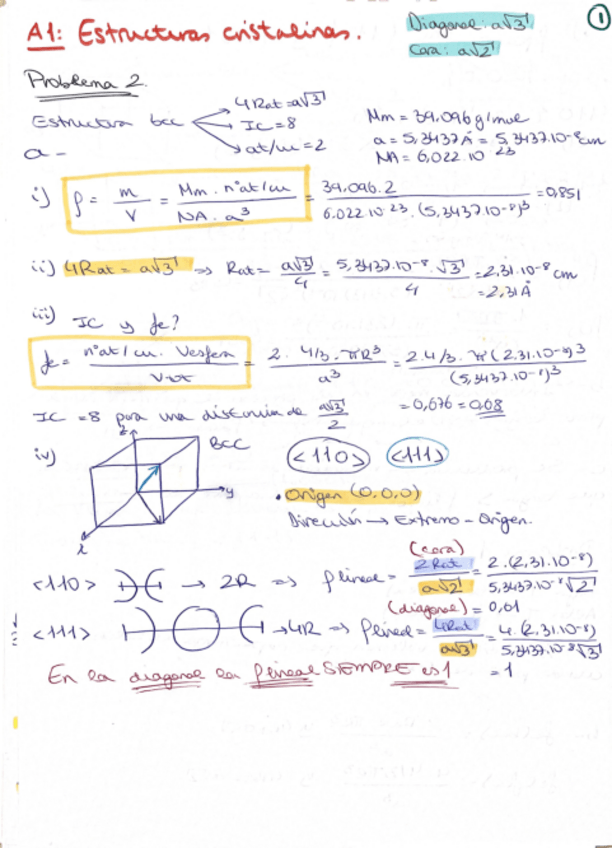 ①
A1: Estructuras cristalinas.
Diagonal: a√3
Cara: a√2
Problema 2.
Estructura bcc
4Rat = a√3
IC = 8
at/cu = 2
a -
Mm = 39,096 g/mol
a = 5,3437 Å = 5,3437·10⁻⁸ cm
NA = 6,022·10²³
i) ρ = m/V = Mm · nºat/cu / NA · a³ = 39,096 · 2 / 6,022·10²³ · (5,3437·10⁻⁸)³ = 0,851
ii) 4Rat = a√3 ⇒ Rat = a√3/4 = 5,3437·10⁻⁸ · √3 / 4 = 2,31·10⁻⁸ cm
= 2,31 Å
iii) IC y fe?
fe = nºat/cu · Vesfera / = 2 · 4/3 · πR³ / a³ = 2 · 4/3 · π (2,31·10⁻⁸)³ / (5,3437·10⁻⁸)³
= 0,676 = 0,68
IC = 8 para una distancia de a√3/2
iv) BCC
z
y
x
<110> <111>
• Origen (0,0,0)
Dirección → Extremo - Origen.
(cara)
<110> → 2R ⇒ ρlineal = 2Rat / a√2 = 2·(2,31·10⁻⁸) / 5,3437·10⁻⁸√2
= 0,61
(diagonal)
<111> → 4R ⇒ ρlineal = 4Rat / a√3 = 4·(2,31·10⁻⁸) / 5,3437·10⁻⁸√3
= 1
En la diagonal la ρlineal SIEMPRE es 1